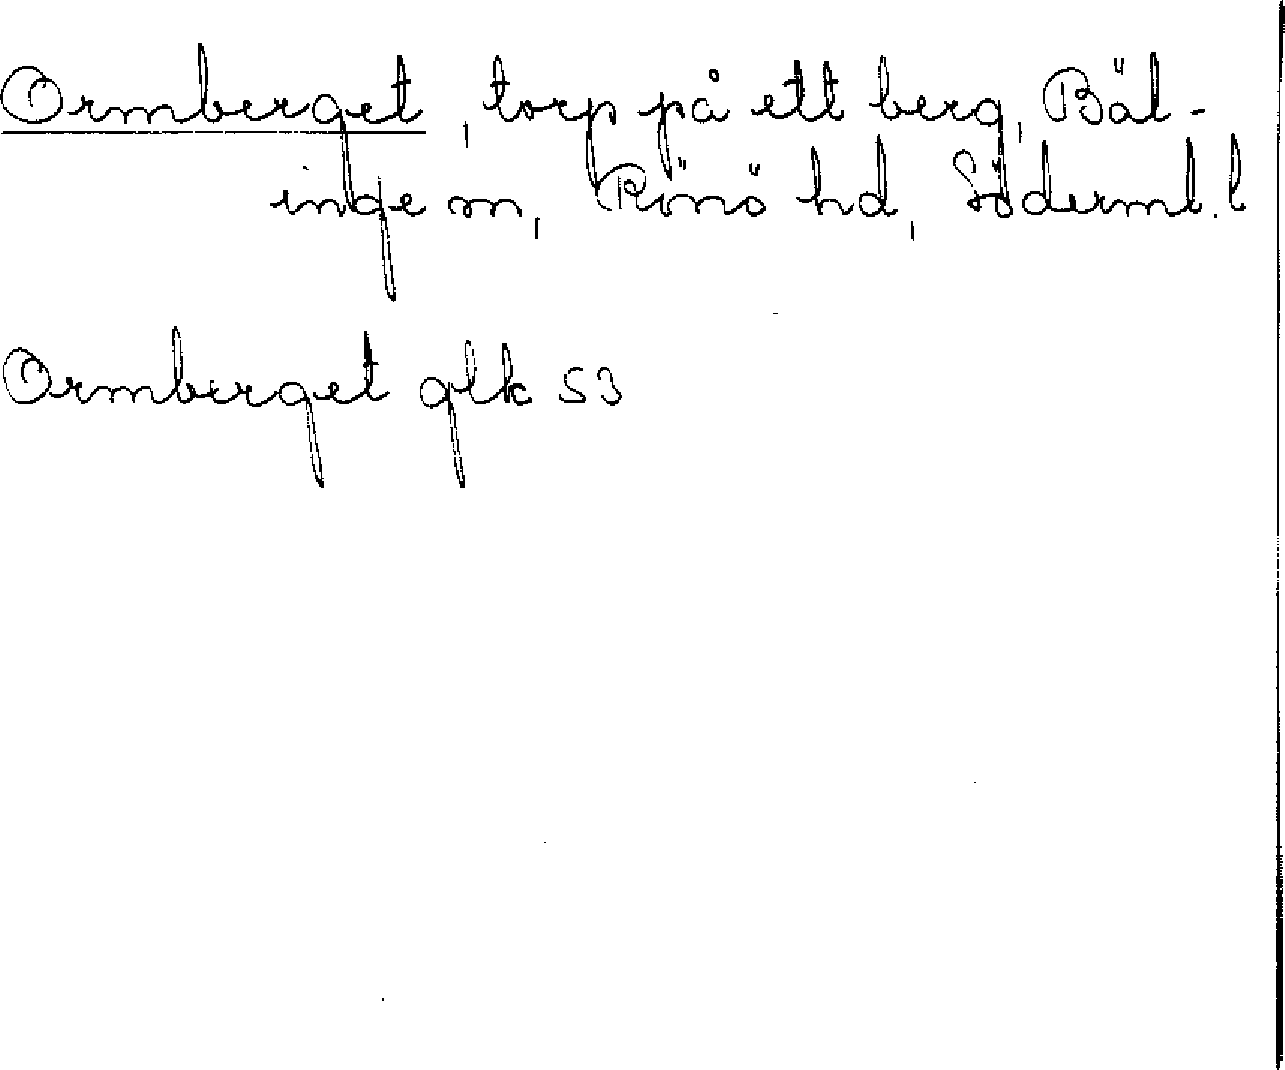 Ormberget, torp på ett berg, Bäl-
inge sn, Rönö hd, Söderml. l
Ormberget glk 53